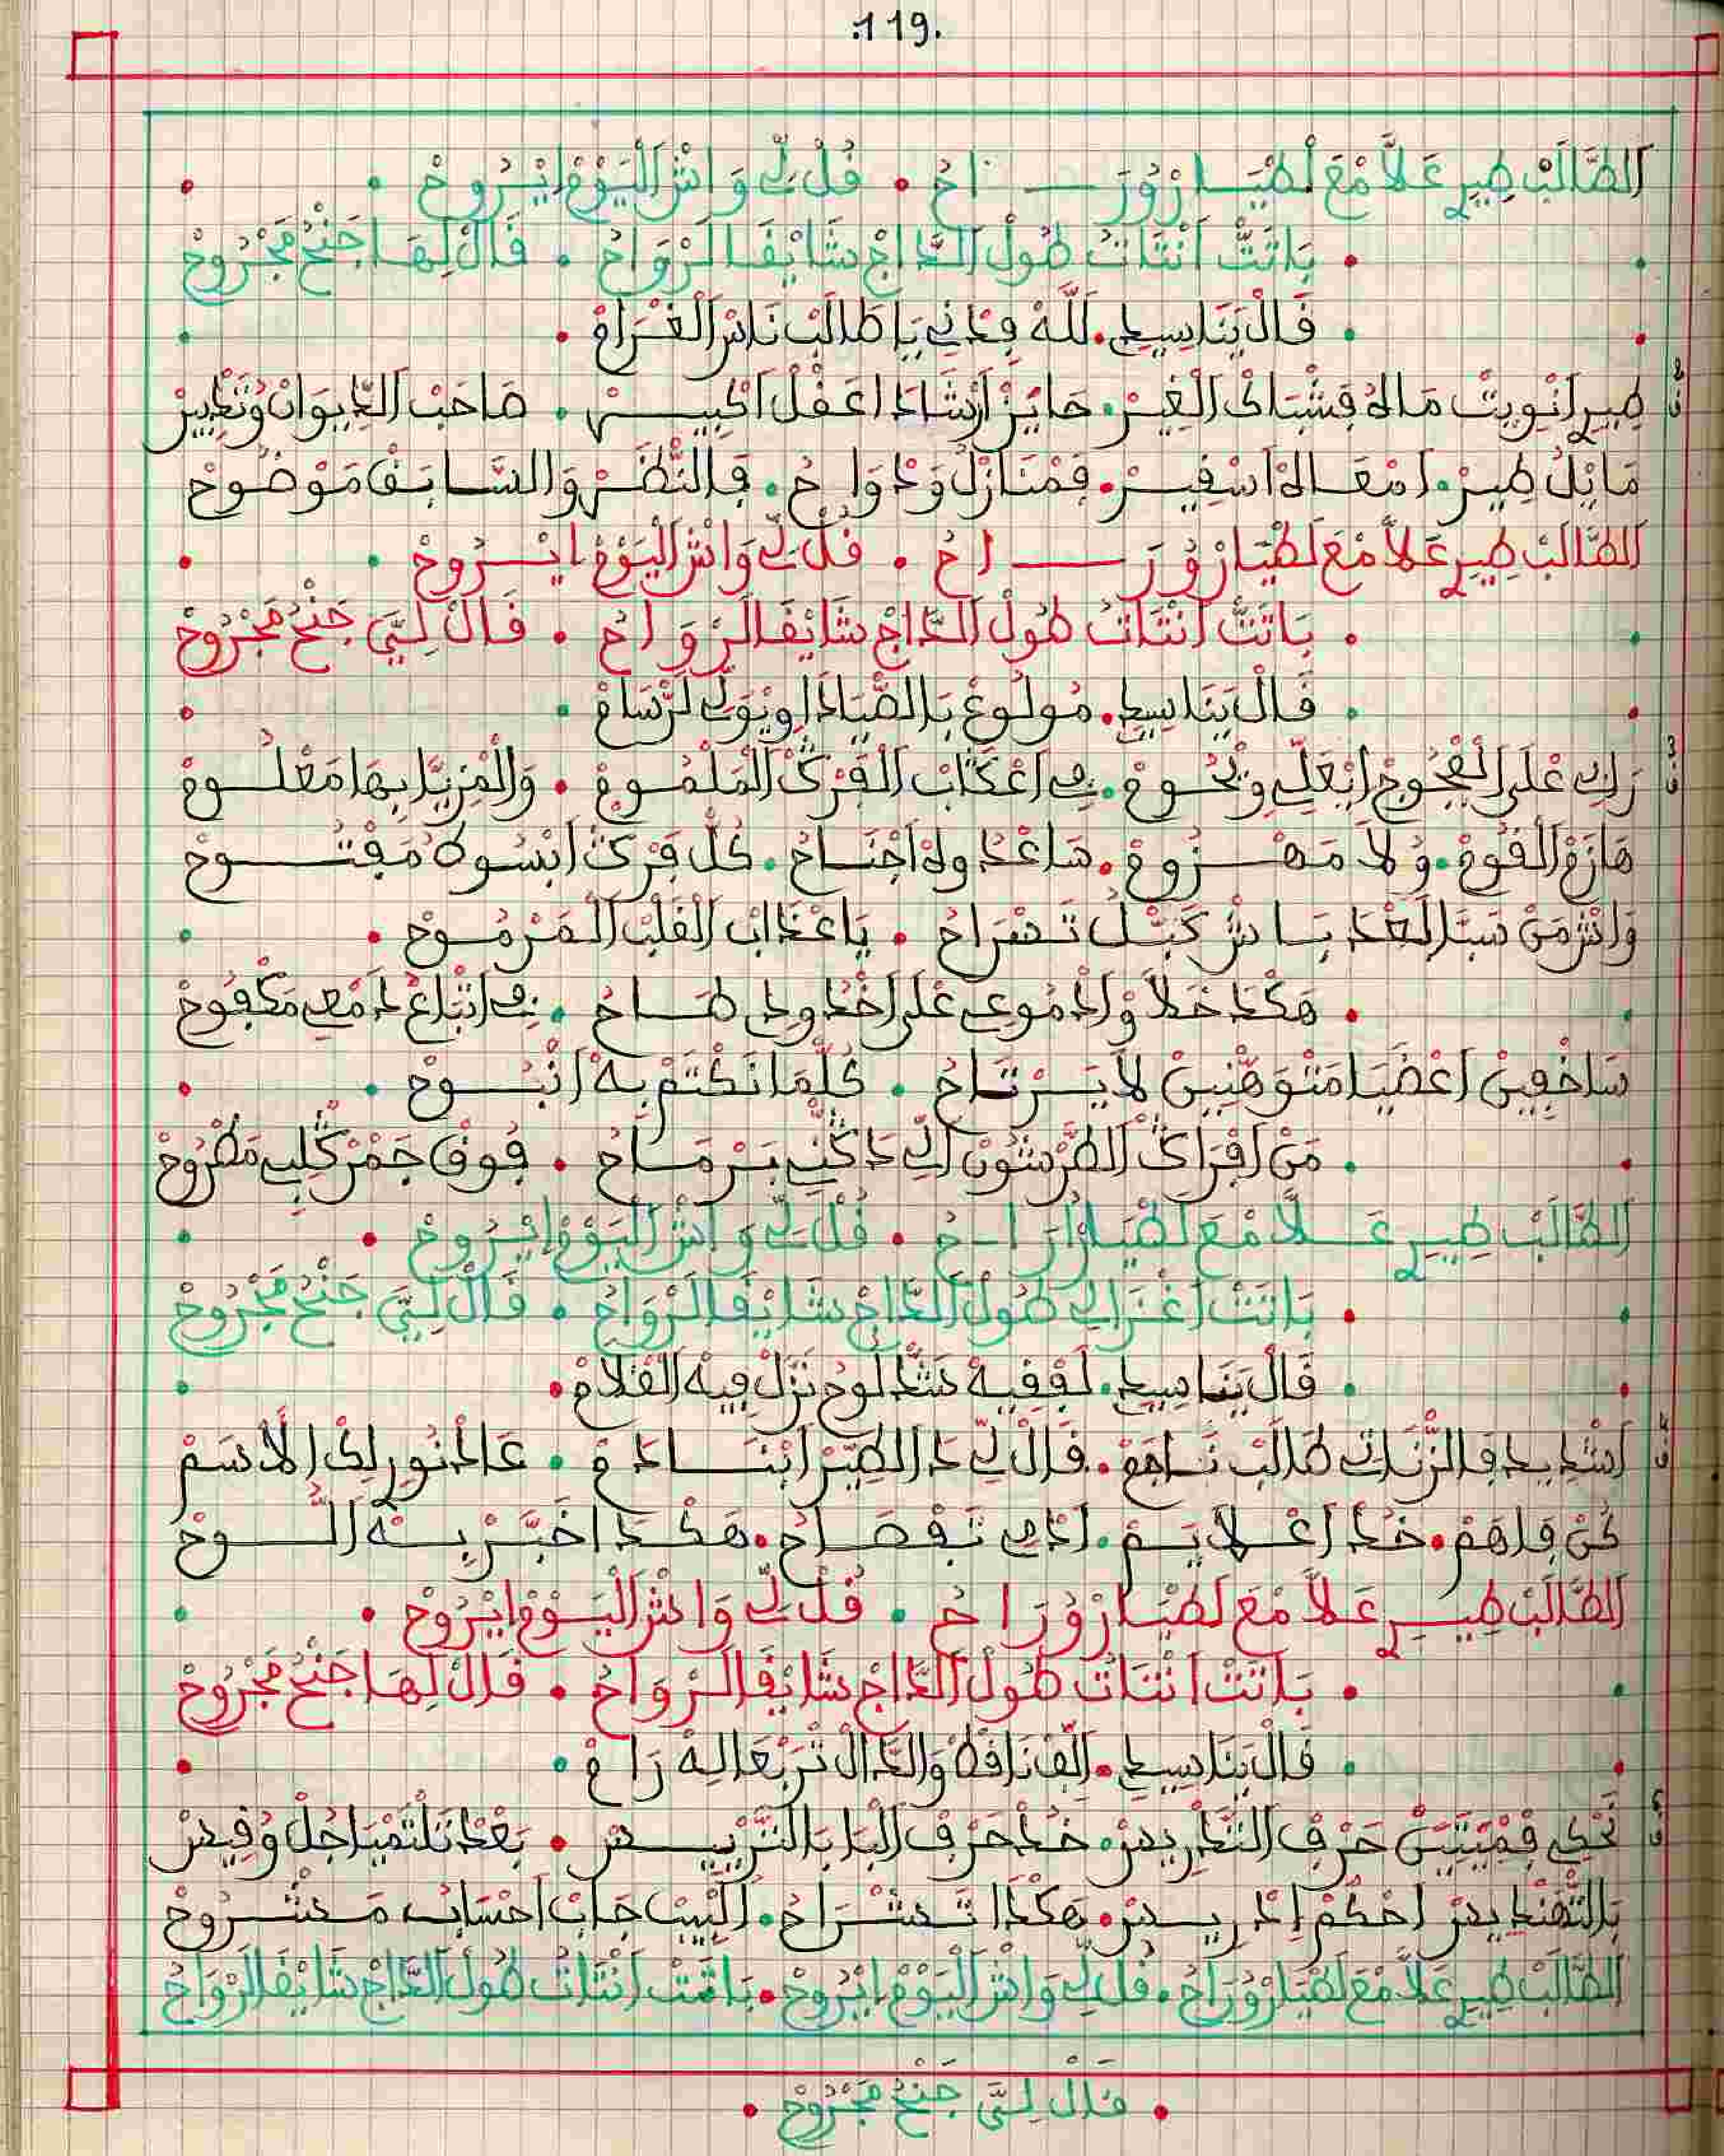 .119.
اَلطَّالَبْ طِيرِي عَلاَّ مْعَ لَطْيَارْ وُرَاحْ • قُلْ لِي وَاشْ اَلْيَوْمْ اِيْرُوحْ
بَاتَتْ اَنْتَاتُ طُولْ اَلدَّاجْ شَايْقَا لَرْوَاحْ • قَالْ لِهَا جَنْحُ مَجْرُوحْ
قَالْ يَنَا سِيدِي. لَلَّهْ فِدْنِي يَا طَالَبْ نَاسْ اَلْغْرَامْ
طِيرِي اَنْوِيتْ مَالُهْ فِشْبَاكْ اَلْغِيرْ. حَايَزْ اَرْشَادْ اعْقَلْ اَكْبِيرْ. صَاحَبْ اَلدِّيوَانْ وُتَدْبِيرْ
مَا بْلُ طِيرْ. اَمْعَالُهْ اَسْفِيرْ. فَمْنَازَلُ وَدْوَاحُ. فَالنَّظَرْ وَالسَّابَقْ مَوْضُوحْ
اَلطَّالَبْ طِيرِي عَلاَّ مْعَ لَطْيَارْ وُرَاحُ • قُلْ لِي وَاشْ اَلْيَوْمْ اِيْرُوحْ
بَاتَتْ اَنْتَاتُ طُولْ اَلدَّاجْ شَايْقَا لَرْوَاحُ • قَالْ لِيَّ جَنْحُ مَجْرُوحْ
قَالْ يَنَا سِيدِي. مُولُوعْ بَالصِّيَادَا وِيْوَلِّي لَرْسَامْ
رَاكْ عْلَى اَلْفْجُوجْ اِيْعَلِّي وِيْحُومْ. فِي اعْكَابْ اَلْفَرْكْ اَلْمَلْمُومْ • وَالْمْزِيَّا بِهَا مَعْلُومْ
هَازَمْ اَلْقُومْ. وُلاَ مَهْزُومْ. سَاعْدُولُهْ اَجْنَاحُ. كُلْ فَرْكْ اَبْسُوكُهْ مَفْتُوحْ
وَاشْ مَنْ سَبَّا لَعْدَ بَاشْ كَبَّلْ تَسْرَاحُ • يَا عْذَابْ اَلْقَلْبْ اَلْمَرْمُوحْ
هَكْدَ خَلاَّوْ اَدْمُوعِي عْلَى اَخْدُودِي طَاحُ • فِي اَتْبَاعْ دَمْعِي مَكْفُوحْ
سَاخْفِينْ اَعْضَيَا مَتْوَهْنِينْ لاَ يَرْتَاحُ • كُلْمَا نَكْتَمْ بِهْ اَنْبُوحْ
مَنْ اَفْرَاكْ اَلطَّرْشُونْ اَلِّي دَاكْنِي بَرْمَاحُ • فُوقْ جَمْرْ كْلِيبِي مَطْرُوحْ
اَلطَّالَبْ طِيرِي عَلاَّ مْعَ لَطْيَارْ وُرَاحُ • قُلْ لِي وَاشْ اَلْيَوْمْ اِيْرُوحْ
بَاتَتْ اَغْزَالِي طُولْ اَلدَّاجْ شَايْقَا لَرْوَاحُ • قَالْ لِيَّ جَنْحُ مَجْرُوحْ
قَالْ يَنَا سِيدِي. لَفْقِيهْ شَدْ لُوحُ نَزَّلْ فِيهْ اَلْقْلاَمْ
اَشْدِيدْ فَالزَّنَاتِي طَالَبْ نَاهَمْ. قَالْ لِي دَا الطِّيرْ اَبْنَادَمْ • عَادْنُورِيكْ اَلاَسَمْ
كُنْ فَاهَمْ. خُدْ اَعْلاَيَمْ. اَدْمِي تَفْصَاحْ. هَكْدَا خَبَّرْ بِهْ اَللُّوحْ
اَلطَّالَبْ طِيرِي عَلاَّ مْعَ لَطْيَارْ وُرَاحُ • قُلْ لِي وَاشْ اَلْيَوْمْ اِيْرُوحْ
بَاتَتْ اَنْتَاتُ طُولْ اَلدَّاجْ شَايْقَا لَرْوَاحُ • قَالْ لِهَا جَنْحُ مَجْرُوحْ
قَالْ يَنَا سِيدِي. اَلِفْ نَاقَطْ وَالدَّالْ تَرْبَعَا لِهْ رَامْ
تَحْكِي فْمِيتِينْ حَرْفْ اَلتَّدْرِيسْ. خُدْ حَرْفْ اَلْبَا بَالتَّرْيِيسْ • بَعْدْ تَلْتْمْيَا جُلْ وُقِيسْ
بَالتَّهْنْدِيسْ اَحْكُمْ اِدْرِيسْ. هَكْدَا تَشْرَاحُ. اَلْبِيتْ جَابْ اَحْسَابُ مَشْرُوحْ
اَلطَّالَبْ طِيرِي عَلاَّ مْعَ لَطْيَارْ وُرَاحُ. قُلْ لِي وَاشْ اَلْيَوْمْ اِيْرُوحْ. بَاتَتْ اَنْتَاتُ طُولْ اَلدَّاجْ شَايْقَا لَرْوَاحُ
• قَالْ لِيَّ جَنْحُ مَجْرُوحْ •